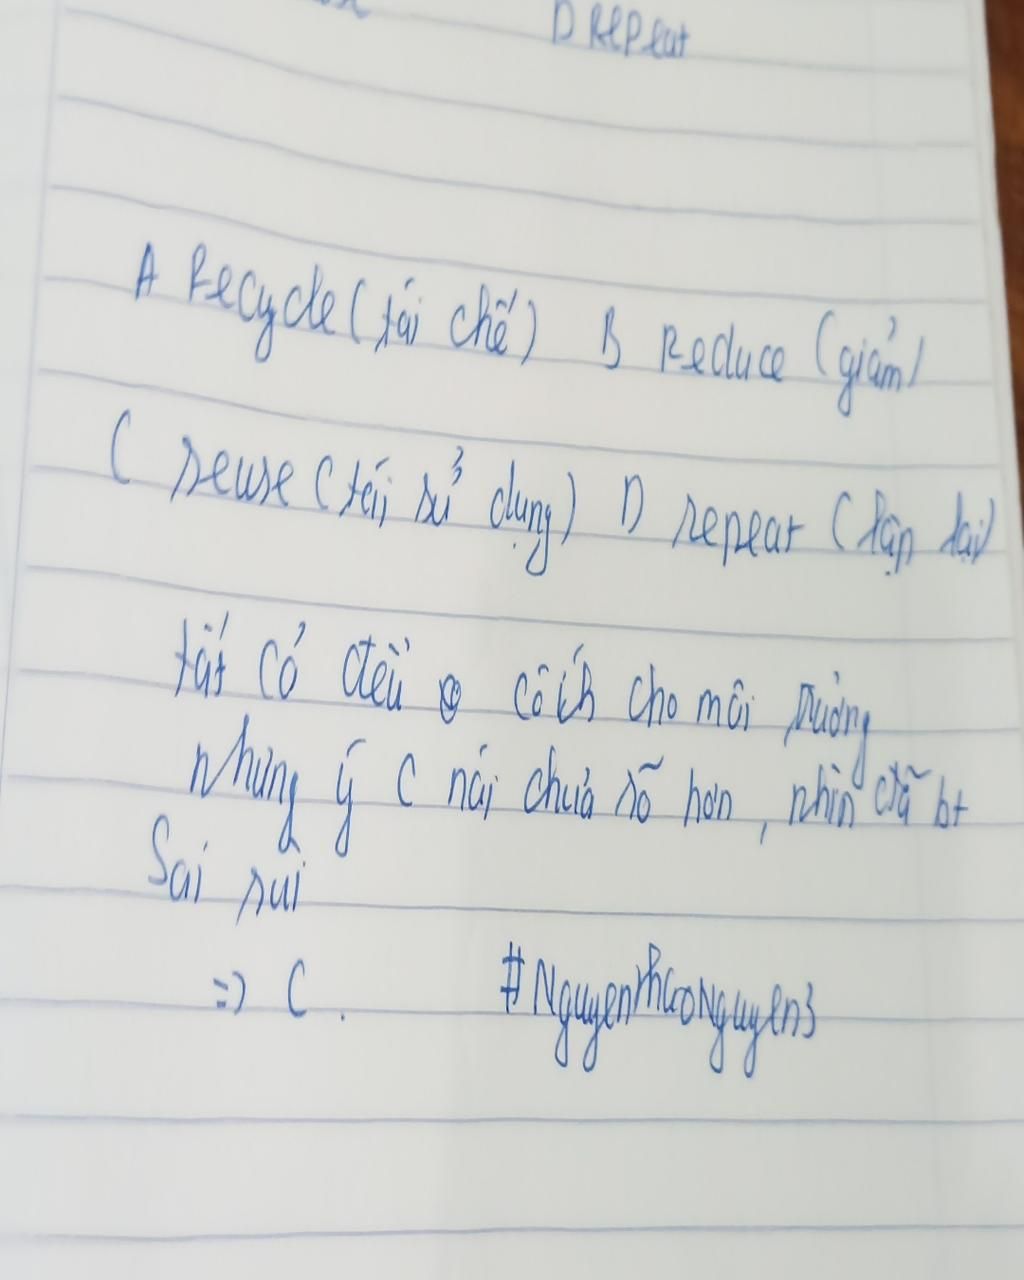 D Repeat
A Recycle (tái chế) B Reduce (giảm)
C reuse (tái sử dụng) D repeat (lặp lại)
tất cả đều có ích cho môi trường
nhưng ý C nói chưa rõ hơn, nhìn đã bt
Sai rùi
=> C. #NguyenthaoNguyen3